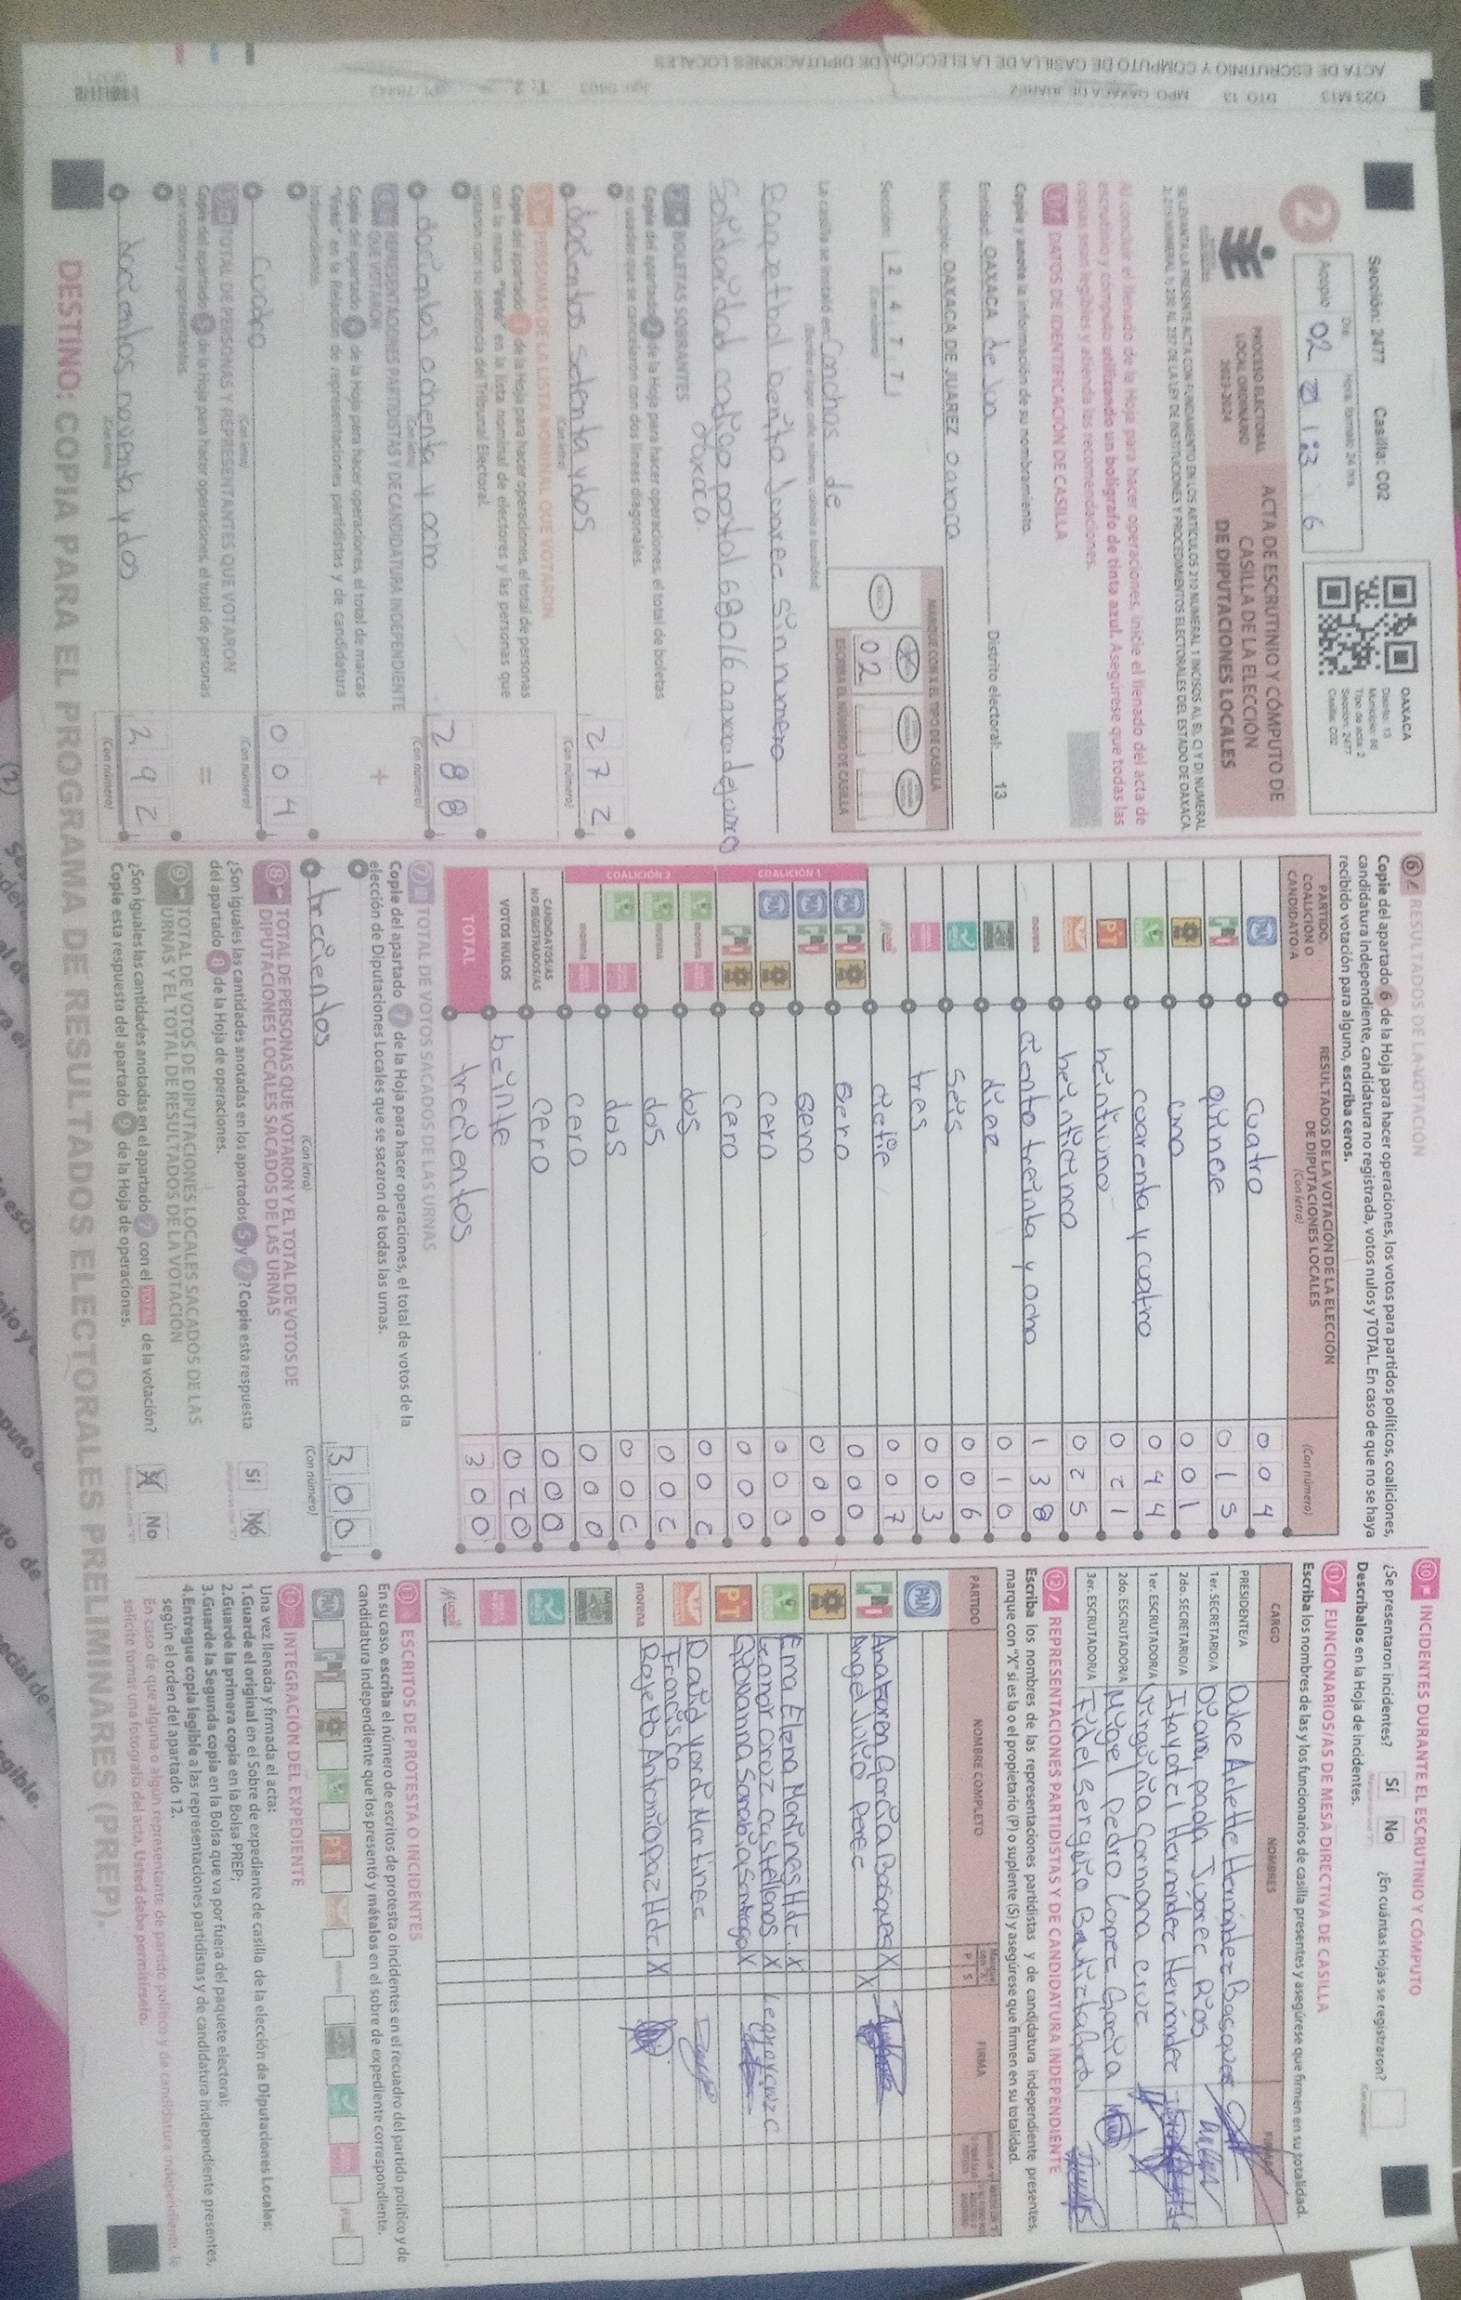 Sección: 2477 Casilla: C02
Día Hora, formato 24 hrs.
Acopio 02
OAXACA
Distrito: 13
Tipo de acta: 2
Sección: 2477
Casilla: C02
2
PROCESO ELECTORAL
LOCAL ORDINARIO
2023-2024
ACTA DE ESCRUTINIO Y CÓMPUTO DE
CASILLA DE LA ELECCIÓN
DE DIPUTACIONES LOCALES
SE LEVANTA LA PRESENTE ACTA CON FUNDAMENTO EN LOS ARTÍCULOS 212 NUMERAL 1 INCISOS A), B), C) Y D) NUMERAL
Al concluir el llenado de la Hoja para hacer operaciones, inicie el llenado del acta de
escrutinio y cómputo utilizando un bolígrafo de tinta azul. Asegúrese que todas las
copias sean legibles y atienda las recomendaciones.
DATOS DE IDENTIFICACIÓN DE CASILLA
Copie y anote la información de su nombramiento.
Entidad: OAXACA Distrito electoral: 13
Municipio: OAXACA DE JUAREZ oaxaca
Sección: 2 4 7 7
(Con número)
MARQUE CON X EL TIPO DE CASILLA
ESCRIBA EL NÚMERO DE CASILLA
02
La casilla se instaló en: Canchas de
Solidaridad codigo postal 68016 oaxaca de juarez
oaxaca.
BOLETAS SOBRANTES
Copie del apartado 2 de la Hoja para hacer operaciones, el total de boletas
no usadas que se cancelaron con dos líneas diagonales.
docientos setenta y dos 2 7 2
(Con letra) (Con número)
PERSONAS DE LA LISTA NOMINAL QUE VOTARON
Copie del apartado de la Hoja para hacer operaciones, el total de personas
con la marca "Votó" en la lista nominal de electores y las personas que
votaron con su sentencia del Tribunal Electoral.
docientos ochenta y ocho 2 8 8
(Con letra) (Con número)
REPRESENTACIONES PARTIDISTAS Y DE CANDIDATURA INDEPENDIENTE
QUE VOTARON
Copie del apartado 4 de la Hoja para hacer operaciones, el total de marcas
"Votó" en la Relación de representaciones partidistas y de candidatura
independiente.
+
cuatro 0 0 4
(Con letra) (Con número)
TOTAL DE PERSONAS Y REPRESENTANTES QUE VOTARON
Copie del apartado 5 de la Hoja para hacer operaciones, el total de personas
que votaron y representantes.
=
docientos noventa y dos 2 9 2
(Con letra) (Con número)
6 RESULTADOS DE LA VOTACIÓN
Copie del apartado 6 de la Hoja para hacer operaciones, los votos para partidos políticos, coaliciones,
candidatura independiente, candidatura no registrada, votos nulos y TOTAL. En caso de que no se haya
recibido votación para alguno, escriba ceros.
PARTIDO,
COALICIÓN O
CANDIDATO/A
RESULTADOS DE LA VOTACIÓN DE LA ELECCIÓN
DE DIPUTACIONES LOCALES
(Con letra)
(Con número)
PAN cuatro 0 0 4
PRI quince 0 1 5
uno 0 0 1
cuarenta y cuatro 0 4 4
PT beintiuno 0 2 1
beinticinco 0 2 5
morena ciento treinta y ocho 1 3 8
diez 0 1 0
seis 0 0 6
tres 0 0 3
siete 0 0 7
COALICIÓN 1
sero 0 0 0
sero 0 0 0
cero 0 0 0
cero 0 0 0
COALICIÓN 2
dos 0 0 2
dos 0 0 2
dos 0 0 2
cero 0 0 0
CANDIDATOS/AS
NO REGISTRADOS/AS
cero 0 0 0
VOTOS NULOS beinte 0 2 0
TOTAL trecientos 3 0 0
7 TOTAL DE VOTOS SACADOS DE LAS URNAS
Copie del apartado 7 de la Hoja para hacer operaciones, el total de votos de la
elección de Diputaciones Locales que se sacaron de todas las urnas.
trecientos 3 0 0
(Con letra) (Con número)
8 TOTAL DE PERSONAS QUE VOTARON Y EL TOTAL DE VOTOS DE
DIPUTACIONES LOCALES SACADOS DE LAS URNAS
¿Son iguales las cantidades anotadas en los apartados 5 y 7? Copie esta respuesta
del apartado 8 de la Hoja de operaciones.
Sí No
9 TOTAL DE VOTOS DE DIPUTACIONES LOCALES SACADOS DE LAS
URNAS Y EL TOTAL DE RESULTADOS DE LA VOTACIÓN
¿Son iguales las cantidades anotadas en el apartado 7 con el TOTAL de la votación?
Copie esta respuesta del apartado 9 de la Hoja de operaciones.
Sí No
10 INCIDENTES DURANTE EL ESCRUTINIO Y CÓMPUTO
¿Se presentaron incidentes? Sí No ¿En cuántas Hojas se registraron?
Descríbalos en la Hoja de incidentes.
11 FUNCIONARIOS/AS DE MESA DIRECTIVA DE CASILLA
Escriba los nombres de las y los funcionarios de casilla presentes y asegúrese que firmen en su totalidad.
CARGO NOMBRES FIRMAS
PRESIDENTE/A Dulce Arlette Hernández Basquez
1er. SECRETARIO/A Diana paola Juarez Rios
2do. SECRETARIO/A Itayetcel Hernandez Hernández
1er. ESCRUTADOR/A Virguinia Carmona cruz
2do. ESCRUTADOR/A Miguel pedro Lopez Garcia
3er. ESCRUTADOR/A Fidel Serguio Bautista
12 REPRESENTACIONES PARTIDISTAS Y DE CANDIDATURA INDEPENDIENTE
Escriba los nombres de las representaciones partidistas y de candidatura independiente presentes,
marque con "X" si es la o el propietario (P) o suplente (S) y asegúrese que firmen en su totalidad.
PARTIDO NOMBRE COMPLETO P S FIRMA
PAN
PRI Ana Karen Garcia Basquez X
Angel Julio perez X
Ema Elena Martines Hdz. X
Leonor oroz castellanos X
PT Giovanna Sanabia Santiago X
David yordi Martinez
Francisco
morena Rogelio Antonio paz Hdz. X
13 ESCRITOS DE PROTESTA O INCIDENTES
En su caso, escriba el número de escritos de protesta o incidentes en el recuadro del partido político y de
candidatura independiente que los presentó y métalos en el sobre de expediente correspondiente.
14 INTEGRACIÓN DEL EXPEDIENTE
Una vez llenada y firmada el acta:
1.Guarde el original en el Sobre de expediente de casilla de la elección de Diputaciones Locales;
2.Guarde la primera copia en la Bolsa PREP;
3.Guarde la Segunda copia en la Bolsa que va por fuera del paquete electoral;
4.Entregue copia legible a las representaciones partidistas y de candidatura independiente presentes,
según el orden del apartado 12.
En caso de que alguna o algún representante de partido político y de candidatura independiente, le
solicite tomar una fotografía del acta, Usted debe permitírselo.
DESTINO: COPIA PARA EL PROGRAMA DE RESULTADOS ELECTORALES PRELIMINARES (PREP).
ACTA DE ESCRUTINIO Y CÓMPUTO DE CASILLA DE LA ELECCIÓN DE DIPUTACIONES LOCALES
DTO. 13 MPO. OAXACA DE JUAREZ